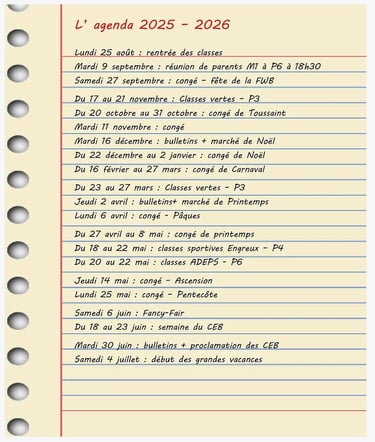 L' agenda 2025 - 2026
Lundi 25 août : rentrée des classes
Mardi 9 septembre : réunion de parents M1 à P6 à 18h30
Samedi 27 septembre : congé - Fête de la FWB
Du 17 au 21 novembre : Classes vertes - P3
Du 20 octobre au 31 octobre : congé de Toussaint
Mardi 11 novembre : congé
Mardi 16 décembre : bulletins + marché de Noël
Du 22 décembre au 2 janvier : congé de Noël
Du 16 février au 27 mars : congé de Carnaval
Du 23 au 27 mars : Classes vertes - P3
Jeudi 2 avril : bulletins+ marché de Printemps
Lundi 6 avril : congé - Pâques
Du 27 avril au 8 mai : congé de printemps
Du 18 au 22 mai : classes sportives Engreux - P4
Du 20 au 22 mai : classes ADEPS - P6
Jeudi 14 mai : congé - Ascension
Lundi 25 mai : congé - Pentecôte
Samedi 6 juin : Fancy-Fair
Du 18 au 23 juin : semaine du CEB
Mardi 30 juin : bulletins + proclamation des CEB
Samedi 4 juillet : début des grandes vacances